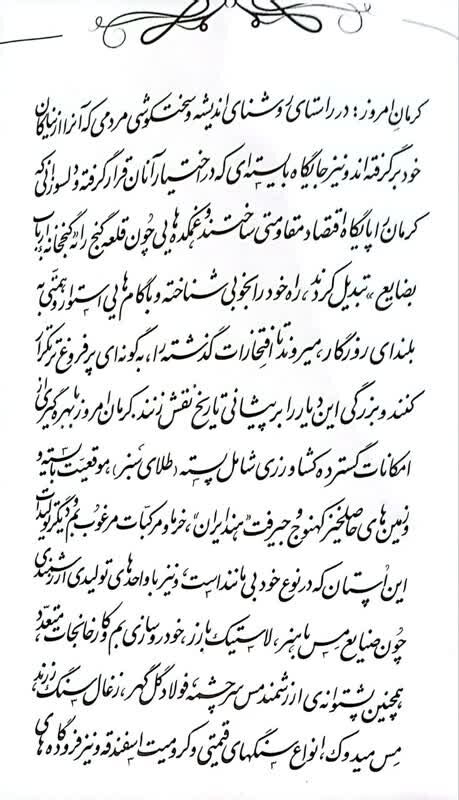 کرمان امروز: در راستای روشنای اندیشه و سخت کوشی مردمی که آنرا از نیاکان
خود برگرفته اند و نیز جایگاه بایسته ای که در اختیار آنان قرار گرفته و دلسوزانی که
کرمان را پایگاه اقتصاد مقاومتی ساختند و غمکده هایی چون قلعه گنج را به "گنجخانه ارباب
بضایع" تبدیل کردند، راه خود را بخوبی شناخته و با گام هایی استوار و همتی به
بلندای روزگار، میروند تا افتخارات گذشته را، به گونه ای پر فروغ تر تکرار
کنند و بزرگی این دیار را بر پیشانی تاریخ نقش زنند. کرمان امروز با بهره گیری از
امکانات گسترده کشاورزی شامل پسته (طلای سبز)، موقعیت بایسته و
زمین های حاصلخیز کهنوج و جیرفت "هند ایران"، خرما و مرکبات مرغوب بم و دیگر تولیدات
این استان که در نوع خود بی مانند است، و نیز با واحدهای تولیدی ارزشمندی
چون صنایع مس باهنر، لاستیک بارز، خودروسازی بم و کارخانجات متعدد
همچنین پشتوانه ی ارزشمند مس سرچشمه فولاد گل گهر، زغال سنگ زرند،
مس میدوک، انواع سنگهای قیمتی و کرومیت اسفندقه و نیز فرودگاه های